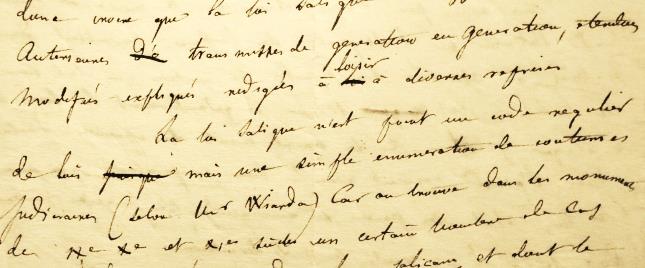 donc encore que la loi salique
Anterieures de transmises de generation en generation, etendues
modifiés expliqués redigées à loisir à diverses reprises
La loi Salique n'est point un code regulier
de lois puisque mais une simple enumeration de coutumes
judiciaires (selon Mr Wiarda) Car on trouve dans les monumens
de IXe Xe et XIe siècles un certain nombre de
salicam et dont le